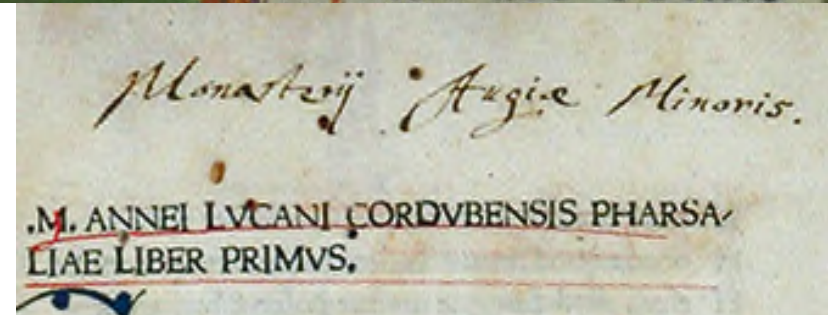 Monasterij Augiæ Minoris.
.M. ANNEI LVCANI CORDVBENSIS PHARSA-
LIAE LIBER PRIMVS.